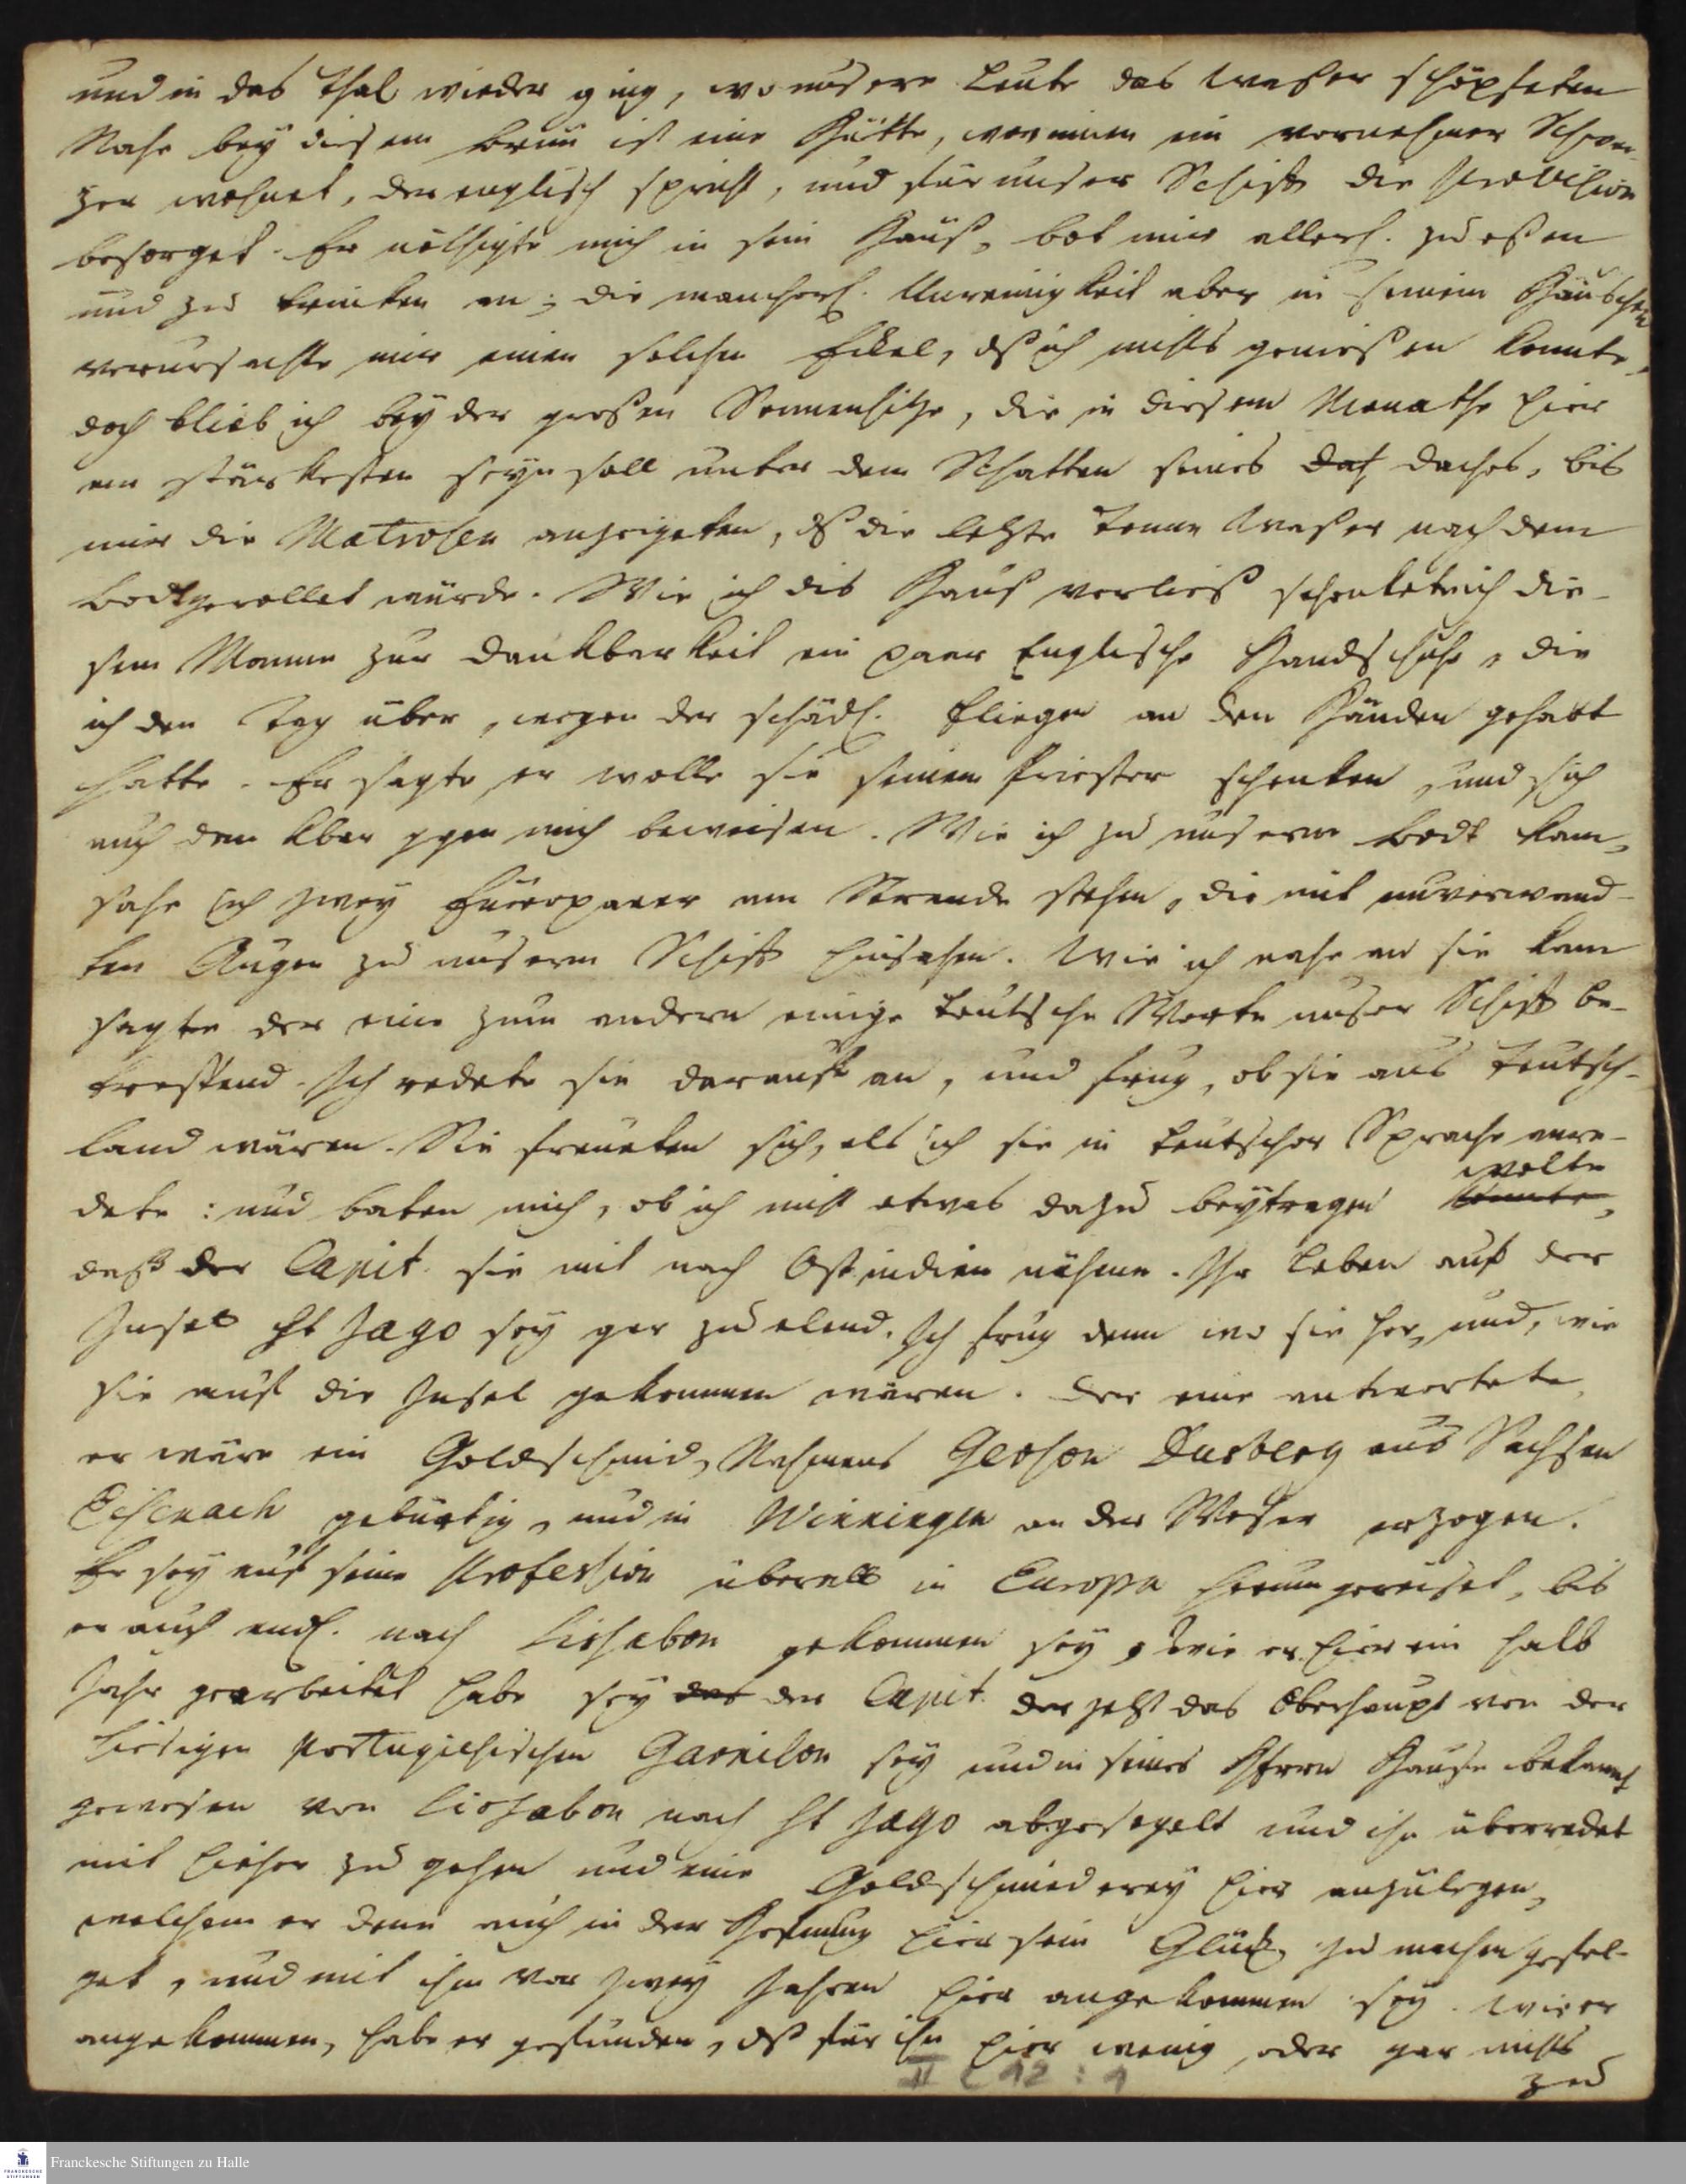 und in das Thal wieder ging, wo unsere Leute das Waßer schöpfeten
Nahe bey diesem Brun̄ ist eine Hütte, worinnen ein vornehmer Schwar-
zer wohnet, der englisch spricht, und für unser Schiff die Provision
besorget. Er nöthigte mich in sein Hauß, bot mir allerh. zu eßen
und zu trinken an; die mancherl. Unreinigkeit aber in seinem Häuschen
verursachte mir einen solchen Eckel, dß ich nichts genießen konnte,
doch blieb ich bey der großen Sonnenhitze, die in diesem Monathe hier
am stärkesten seyn soll unter dem Schatten seines Dach daches, bis
mir die Matrosen anzeigeten, dß die letzte Tonne Waßer nach dem
Bodt gerollet würde. Wie ich dis Hauß verließ schenkete ich die-
sem Manne zur Dankbarkeit ein paar Englische Handschuhe, die
ich den Tag über, wegen der schädl. Fliegen an den Händen gehabt
hatte. Er sagte er wolle sie seinem Priester schenken, und sich
auch dankbar gegen mich beweisen. Wie ich zu unserm Bodt kam,
sahe ich zwey Europaeer am Strande stehen, die mit unverwand-
ten Augen zu unserm Schiff hinsahen. Wie ich nahe an sie kam
sagte der eine zum andern einige teutsche Worte unser Schiff be-
treffend. Ich redete sie darauf an, und frug, ob sie aus Teutsch-
land wären. Sie freueten sich, als ich sie in teutscher Sprache anre-
wolte
dete: und baten mich, ob ich nicht etwas dazu beytragen konnte,
daß der Capit. sie mit nach Ostindien nähme. Ihr Leben auf der
Insel St Jago sey gar zu elend. Ich frug denn wo sie her, und, wie
sie auf die Insel gekommen wären. Der eine antwortete
er wäre ein Goldschmid, Nahmens Gerson Dusberg aus Sachsen
Eisenach gebürtig, und in Winningen an der Weser erzogen.
Er sey auf seine Profession überall in Europa herum gereiset, bis
er auch endl. nach Lissabon gekommen sey, wie er hier ein halb
Jahr gearbeitet habe sey das der Capit. der jetzt das Oberhaupt von der
hiesigen Portugiesischen Garnison sey und in seines Herrn Hause bekannt
gewesen von Lissabon nach St Jago abgesegelt und ihn überredet
mit hieher zu gehen und eine Goldschmiederey hier anzulegen,
welchem er denn auch in der Hofnung hier sein Glück zu machen gefol-
get, und mit ihm vor zwey Jahren hier angekommen sey. Wie er
angekommen, habe er gefunden, dß für ihn hier wenig oder gar nichts
zu
II C 12 : 1
Franckesche Stiftungen zu Halle